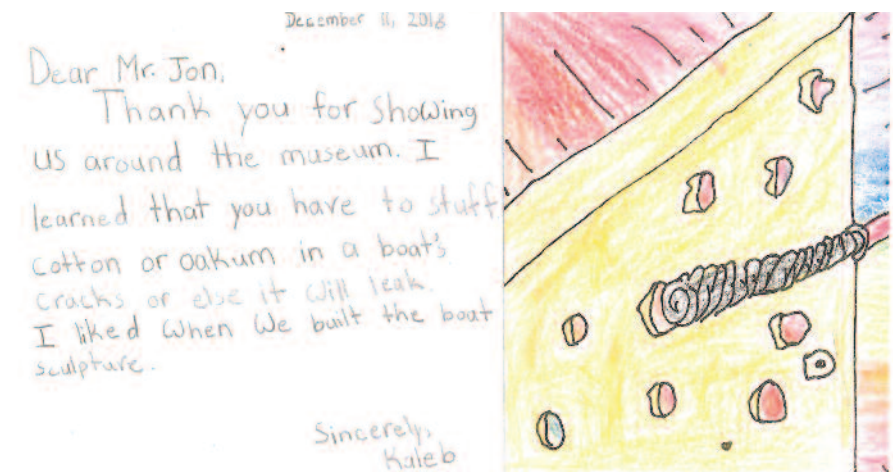 December 11, 2018
Dear Mr. Jon,
Thank you for showing
us around the museum. I
learned that you have to stuff
cotton or oakum in a boat's
cracks or else it will leak.
I liked when we built the boat
sculpture.
Sincerely,
Kaleb